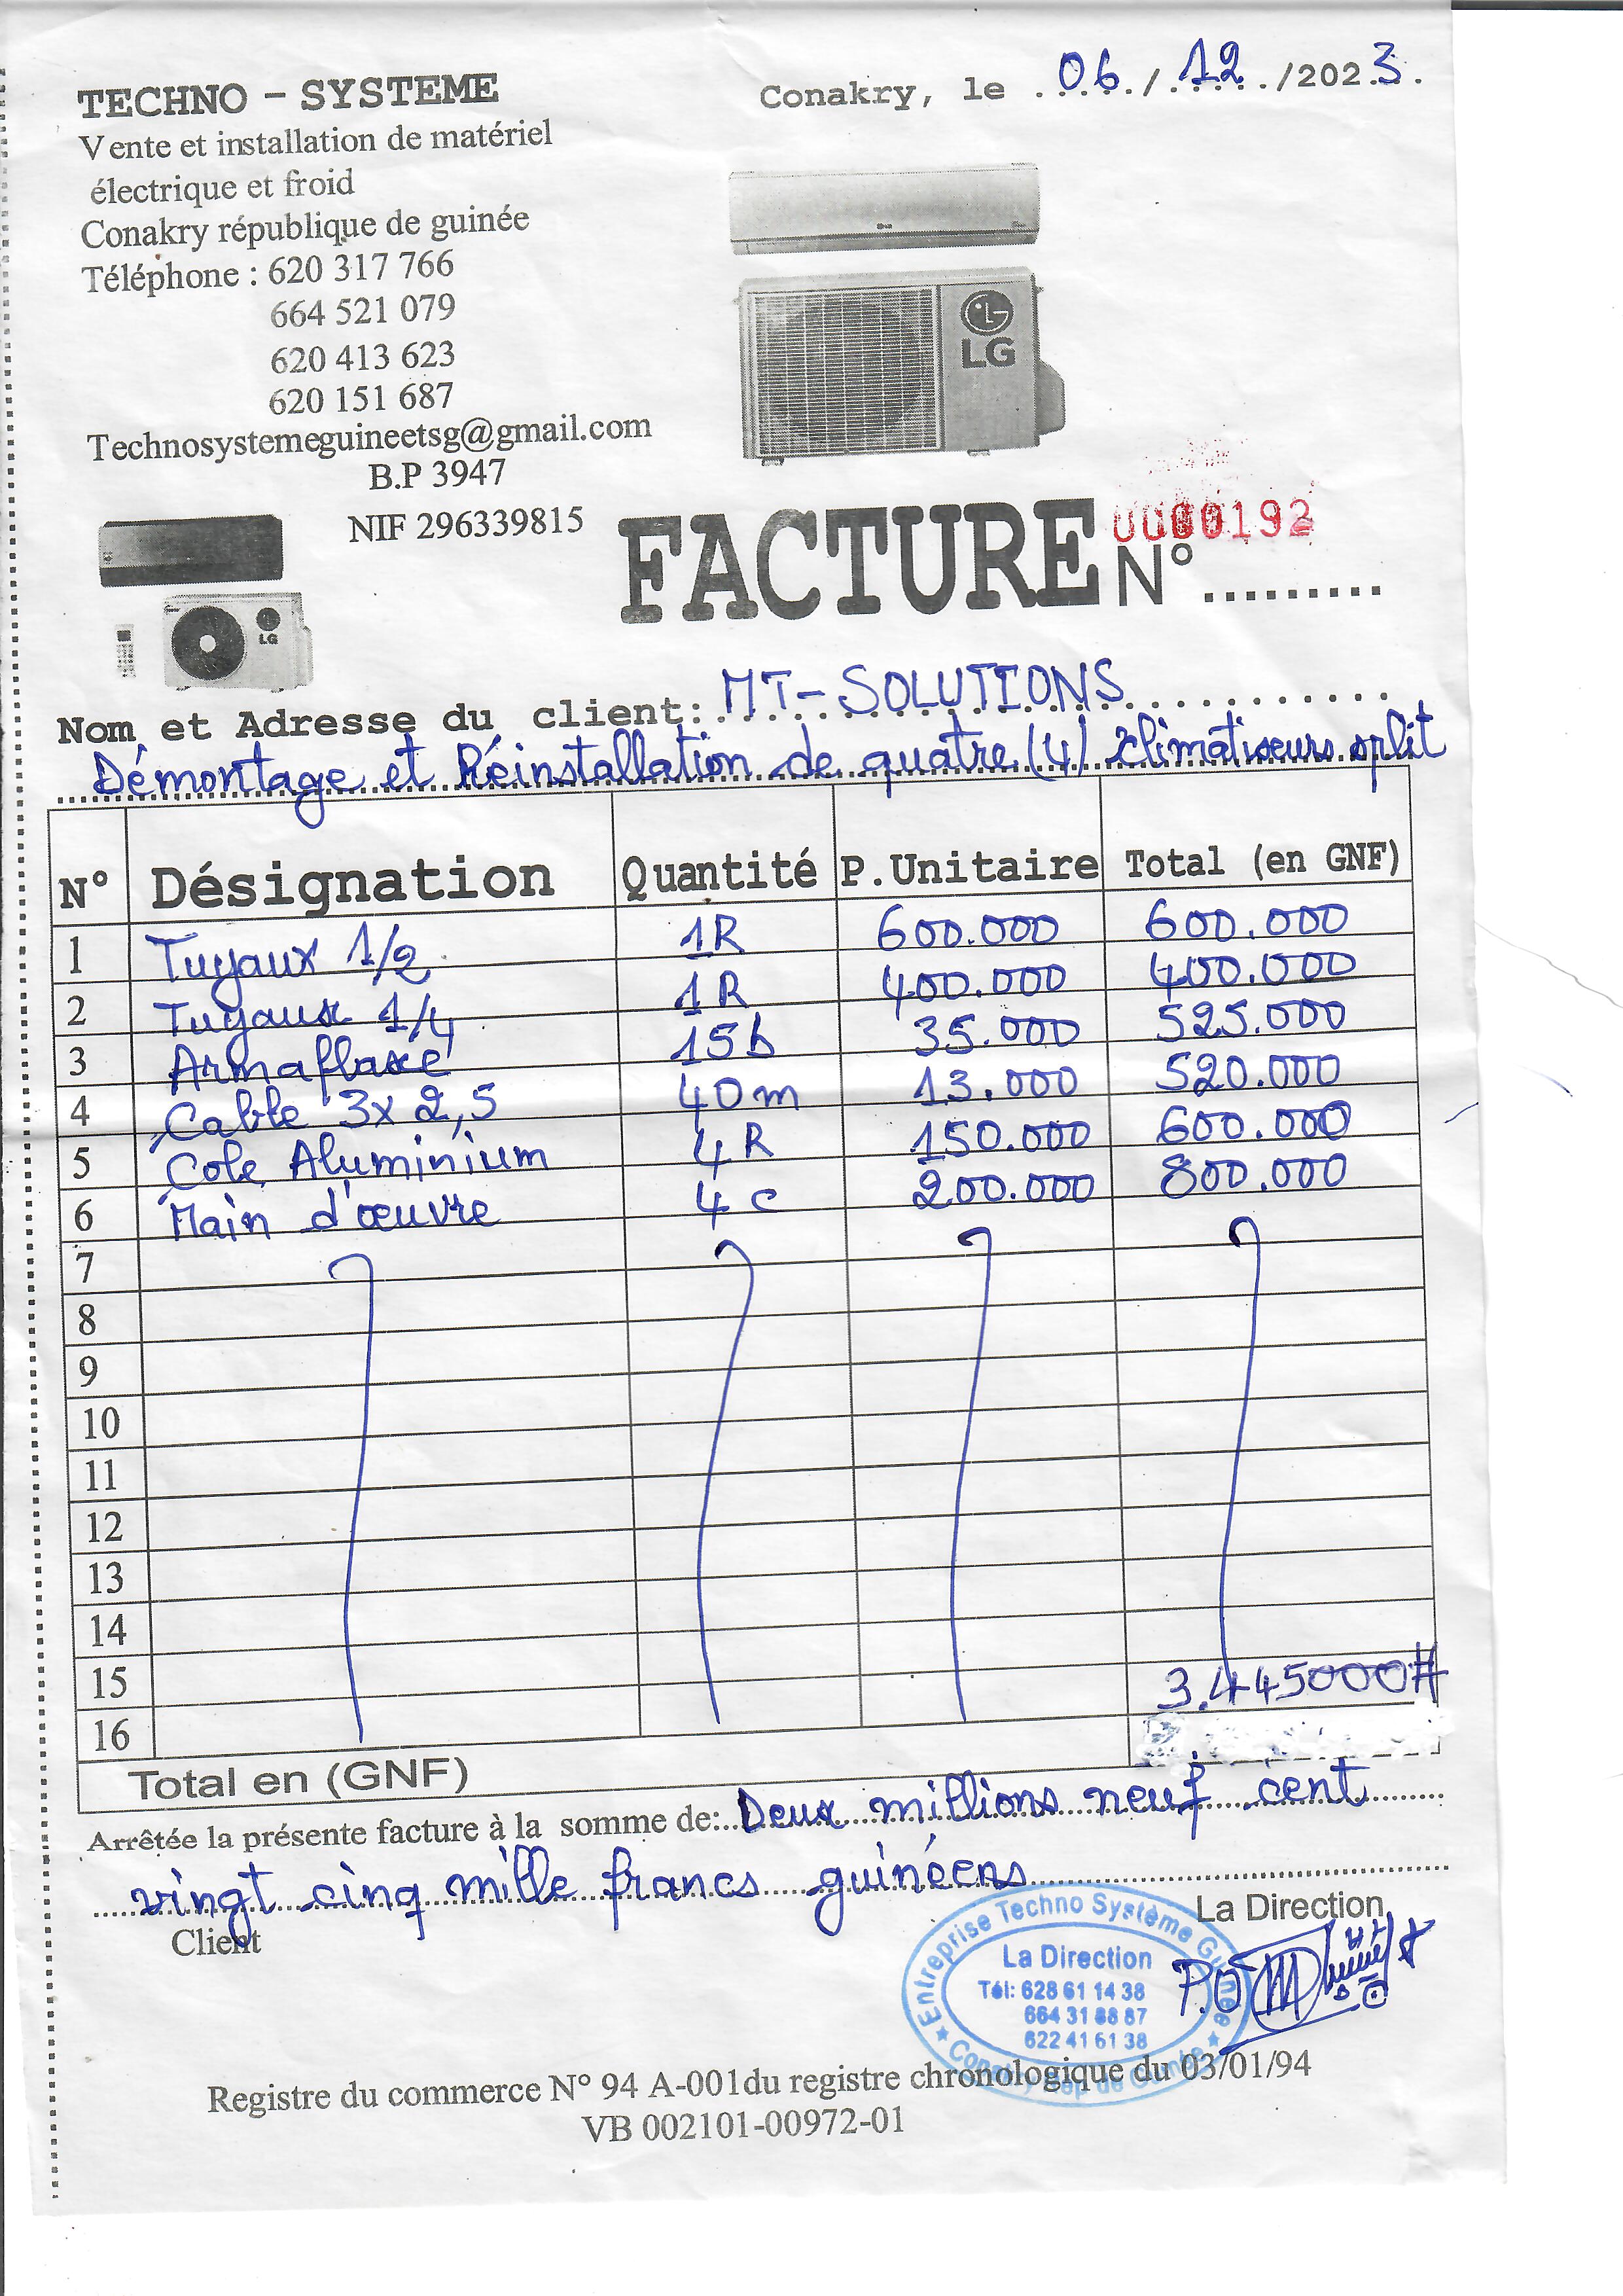 TECHNO - SYSTEME
Vente et installation de matériel
électrique et froid
Conakry république de guinée
Téléphone : 620 317 766
664 521 079
620 413 623
620 151 687
Technosystemeguineetsg@gmail.com
B.P 3947
NIF 296339815
Conakry, le 06/12/2023.
LG
LG
FACTURE N° 0000192
Nom et Adresse du client: MT-SOLUTIONS
Démontage et Réinstallation de quatre (4) climatiseurs split
N° Désignation Quantité P.Unitaire Total (en GNF)
1 Tuyaux 1/2 1R 600.000 600.000
2 Tuyaux 1/4 1R 400.000 400.000
3 Armaflaxe 15b 35.000 525.000
4 Cable 3x2,5 40m 13.000 520.000
5 Cole Aluminium 4R 150.000 600.000
6 Main d'œuvre 4c 200.000 800.000
7
8
9
10
11
12
13
14
15 3.445000#
16
Total en (GNF)
Arrêtée la présente facture à la somme de: Deux millions neuf cent
vingt cinq mille francs guinéens
Client
La Direction
P.O
Entreprise Techno Système Guinée
La Direction
Tél: 628 61 14 38
664 31 88 87
622 41 61 38
Conakry Rép de Guinée
Registre du commerce N° 94 A-001du registre chronologique du 03/01/94
VB 002101-00972-01